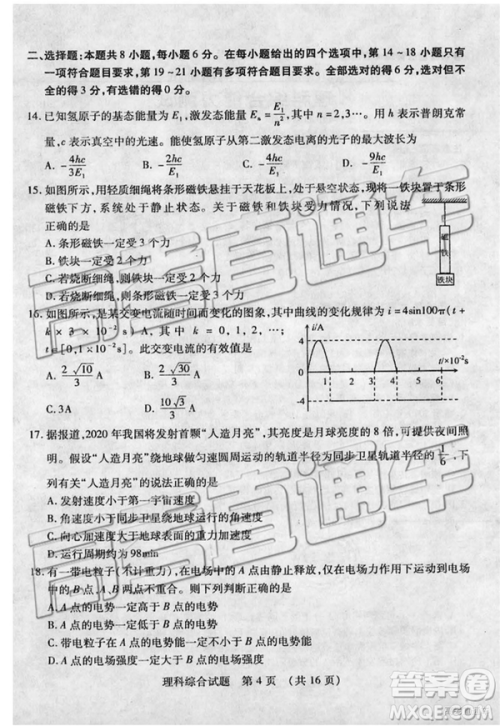 二、选择题：本题共 8 小题，每小题 6 分。在每小题给出的四个选项中，第 14～18 小题只有
一项符合题目要求，第 19～21 小题有多项符合题目要求。全部选对的得 6 分，选对但不全的
得 3 分，有选错的得 0 分。
14. 已知氢原子的基态能量为 E₁，激发态能量 Eₙ = E₁/n²，其中 n=2,3…。用 h 表示普朗克常
量，c 表示真空中的光速。能使氢原子从第二激发态电离的光子的最大波长为
A. -4hc/E₁ B. -2hc/E₁ C. -hc/E₁ D. -9hc/E₁
15. 如图所示，用轻质细绳将条形磁铁悬挂于天花板上，现将一铁块置于条形
磁铁下方，系统处于静止状态。关于磁铁和铁块受力情况，下列说法
正确的是
A. 条形磁铁一定受 3 个力
B. 铁块一定受 2 个力
C. 若烧断细绳，则铁块一定受 2 个力
D. 若烧断细绳，则铁块一定受 3 个力
磁
铁
铁块
16. 如图所示，是某交变电流随时间而变化的图象，其中曲线的变化规律为 i=4sin100π(t+
k×3×10⁻²s)A，其中 k=0,1,2,…；
t=[0,1×10⁻²s]。此交变电流的有效值是
A. 2√10/3 A B. 2√30/3 A
C. 3A D. 10√3/3 A
i/A
t/×10⁻²s
1 2 3 4 5 6
17. 据报道，2020 年我国将发射首颗“人造月亮”，其亮度是月球亮度的 8 倍，可提供夜间照
明。假设“人造月亮”绕地球做匀速圆周运动的轨道半径为同步卫星轨道半径的 1/6，
则有关“人造月亮”的说法正确的是
A. 发射速度小于第一宇宙速度
B. 角速度小于同步卫星绕地球运行的角速度
C. 向心加速度大于地球表面的重力加速度
D. 运行周期约为 98min
18. 有一带电粒子(不计重力)，在电场中的 A 点由静止释放，仅在电场力作用下运动到电场
中的 B 点，A、B 两点不重合。则下列判断正确的是
A. A 点的电势一定高于 B 点的电势
B. A 点的电势一定低于 B 点的电势
C. 带电粒子在 A 点的电势能一定不小于在 B 点的电势能
D. A 点的电场强度一定大于 B 点的电场强度
理科综合试题 第 4 页 (共 16 页)
高考直通车
高考直通车